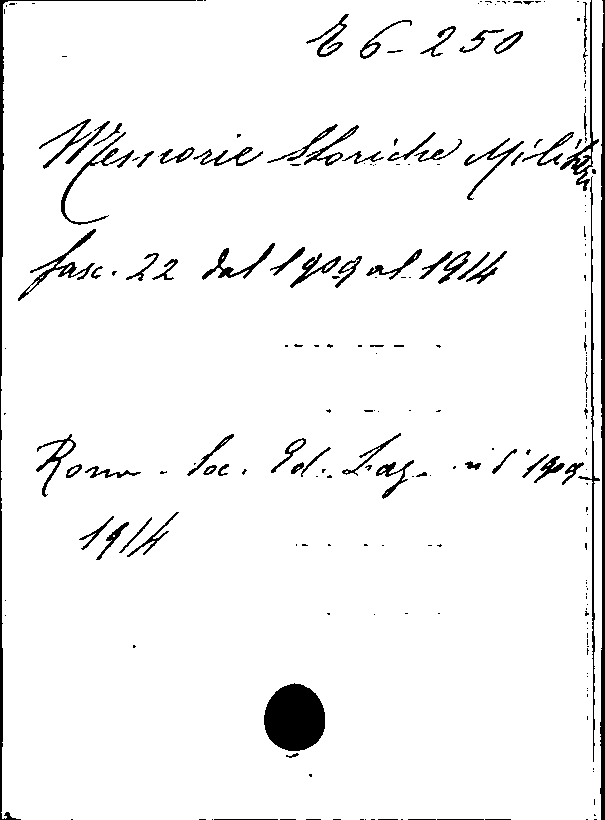 E 6-250
Memorie Storiche Militari
fasc. 22 dal 1909 al 1914
Roma - Soc. Ed. 1909-
1914